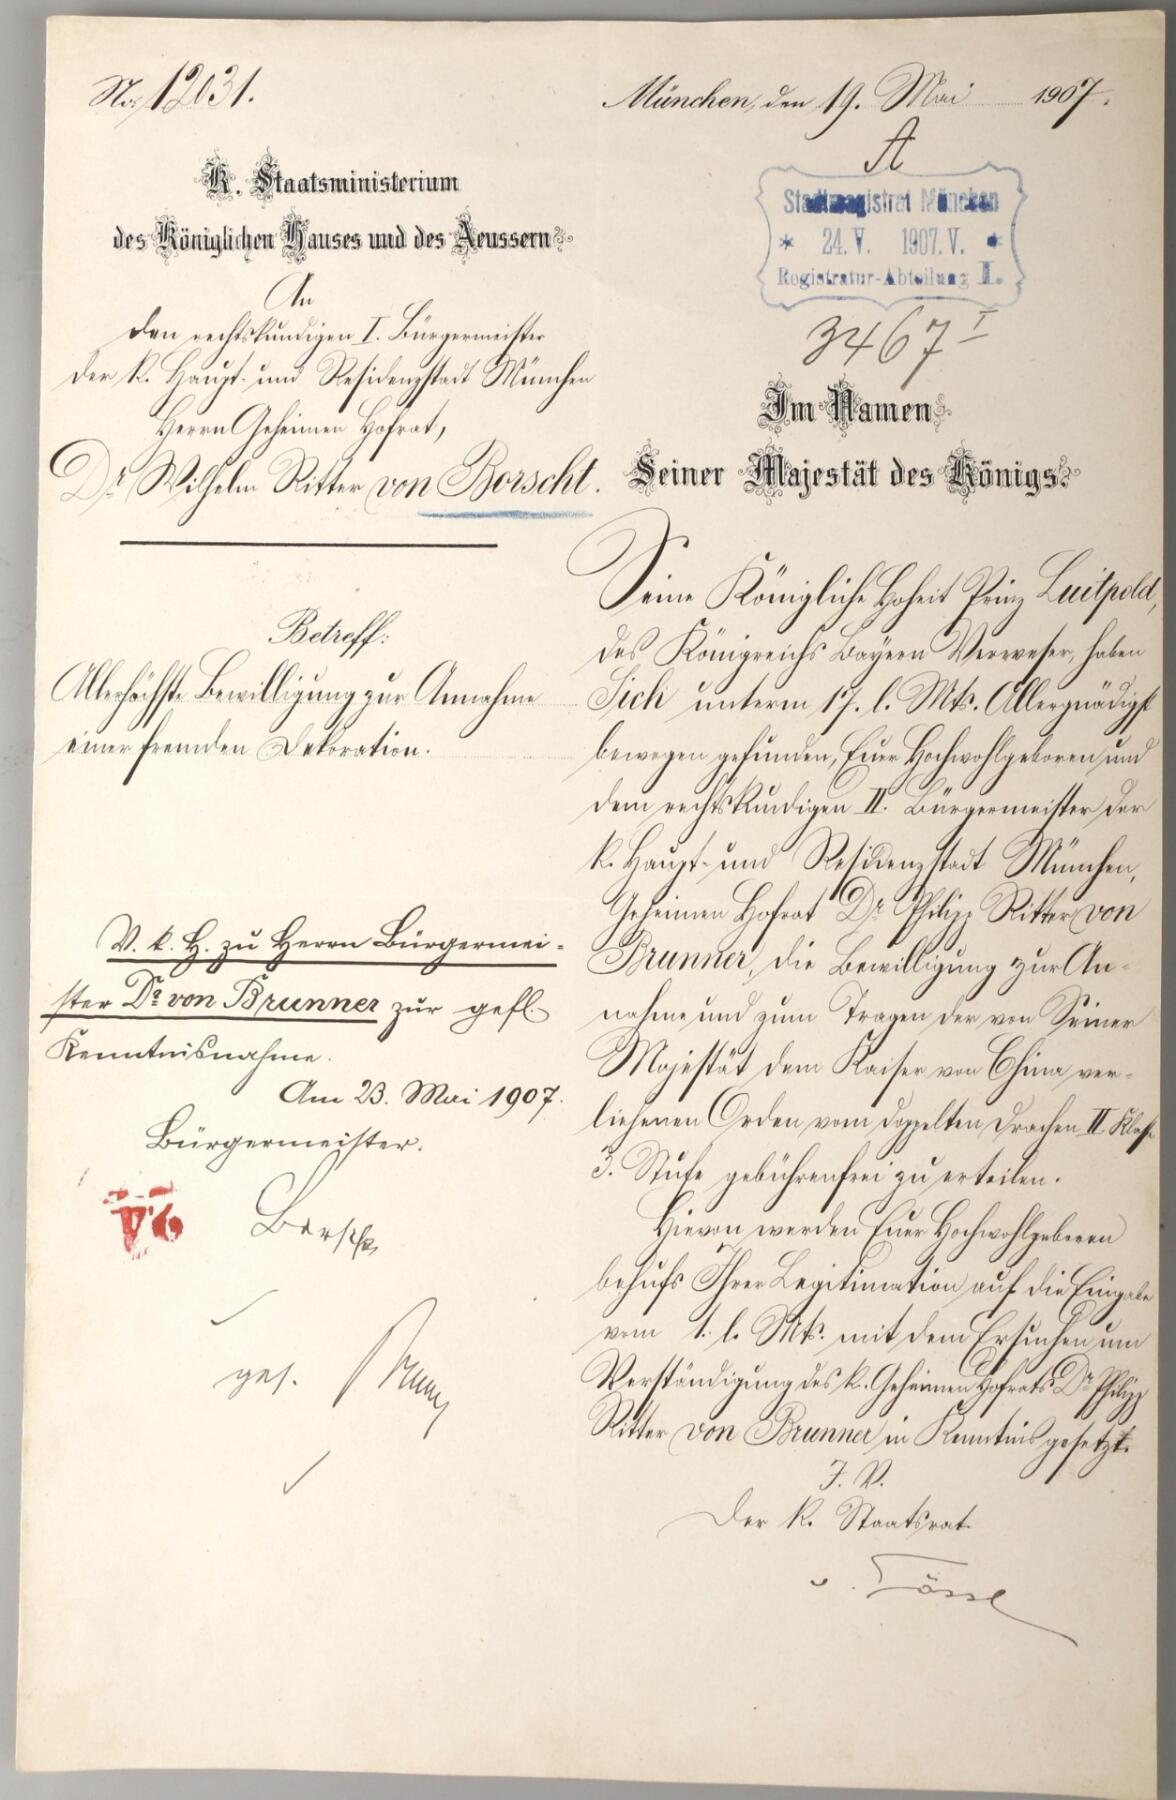 No. 12031.
K. Staatsministerium
des Königlichen Hauses und des Aeussern.
An
den rechtskundigen I. Bürgermeister
der K. Haupt- und Residenzstadt München
Herrn Geheimen Hofrat,
Dr. Wilhelm Ritter von Borscht.
Betreff:
Allerhöchste Bewilligung zur Annahme
einer fremden Dekoration.
V. k. H. zu Herrn Bürgermei-
ster Dr. von Brunner zur gefl.
Kenntnisnahme.
Am 23. Mai 1907.
Bürgermeister.
Borscht
ges. Brunner
München, den 19. Mai 1907.
A
Stadtmagistrat München
* 24. V. 1907. V. *
Registratur-Abteilung I.
3467 I
Im Namen
Seiner Majestät des Königs.
Seine Königliche Hoheit Prinz Luitpold,
des Königreichs Bayern Verweser, haben
Sich unterm 17. l. Mts. Allergnädigst
bewogen gefunden, Euer Hochwohlgeboren und
dem rechtskundigen II. Bürgermeister der
K. Haupt- und Residenzstadt München,
Geheimen Hofrat Dr. Philipp Ritter von
Brunner, die Bewilligung zur An-
nahme und zum Tragen der von Seiner
Majestät dem Kaiser von China ver-
liehenen Orden vom doppelten Drachen II Klasse
3. Stufe gebührenfrei zu erteilen.
Hievon werden Euer Hochwohlgeboren
behufs Ihrer Legitimation auf die Eingabe
vom 1. l. Mts. mit dem Ersuchen um
Verständigung des K. Geheimen Hofrats Dr. Philipp
Ritter von Brunner in Kenntnis gesetzt.
I. V.
Der K. Staatsrat.